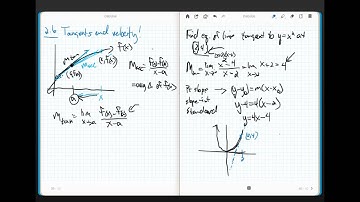 2.6 Tangents and velocity!
f(x)
m tan
(x, f(x))
m sec
(a, f(a))
m sec = f(x)-f(a) / x-a
= avg Δ of f(x)
a
x
m tan = lim x→a f(x)-f(a) / x-a
Find eq. of line tangent to y=x² at
(2,4)
m tan = lim x→2 x²-4 / x-2 = lim x→2 x+2 = 4
Pt slope → (y-y₀)=m(x-x₀)
slope-int
standard
y-4=4(x-2)
y=4x-4
(2,4)